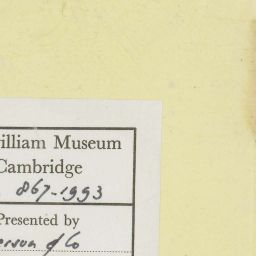 illiam Museum
Cambridge
867-1993
Presented by
erson & Co